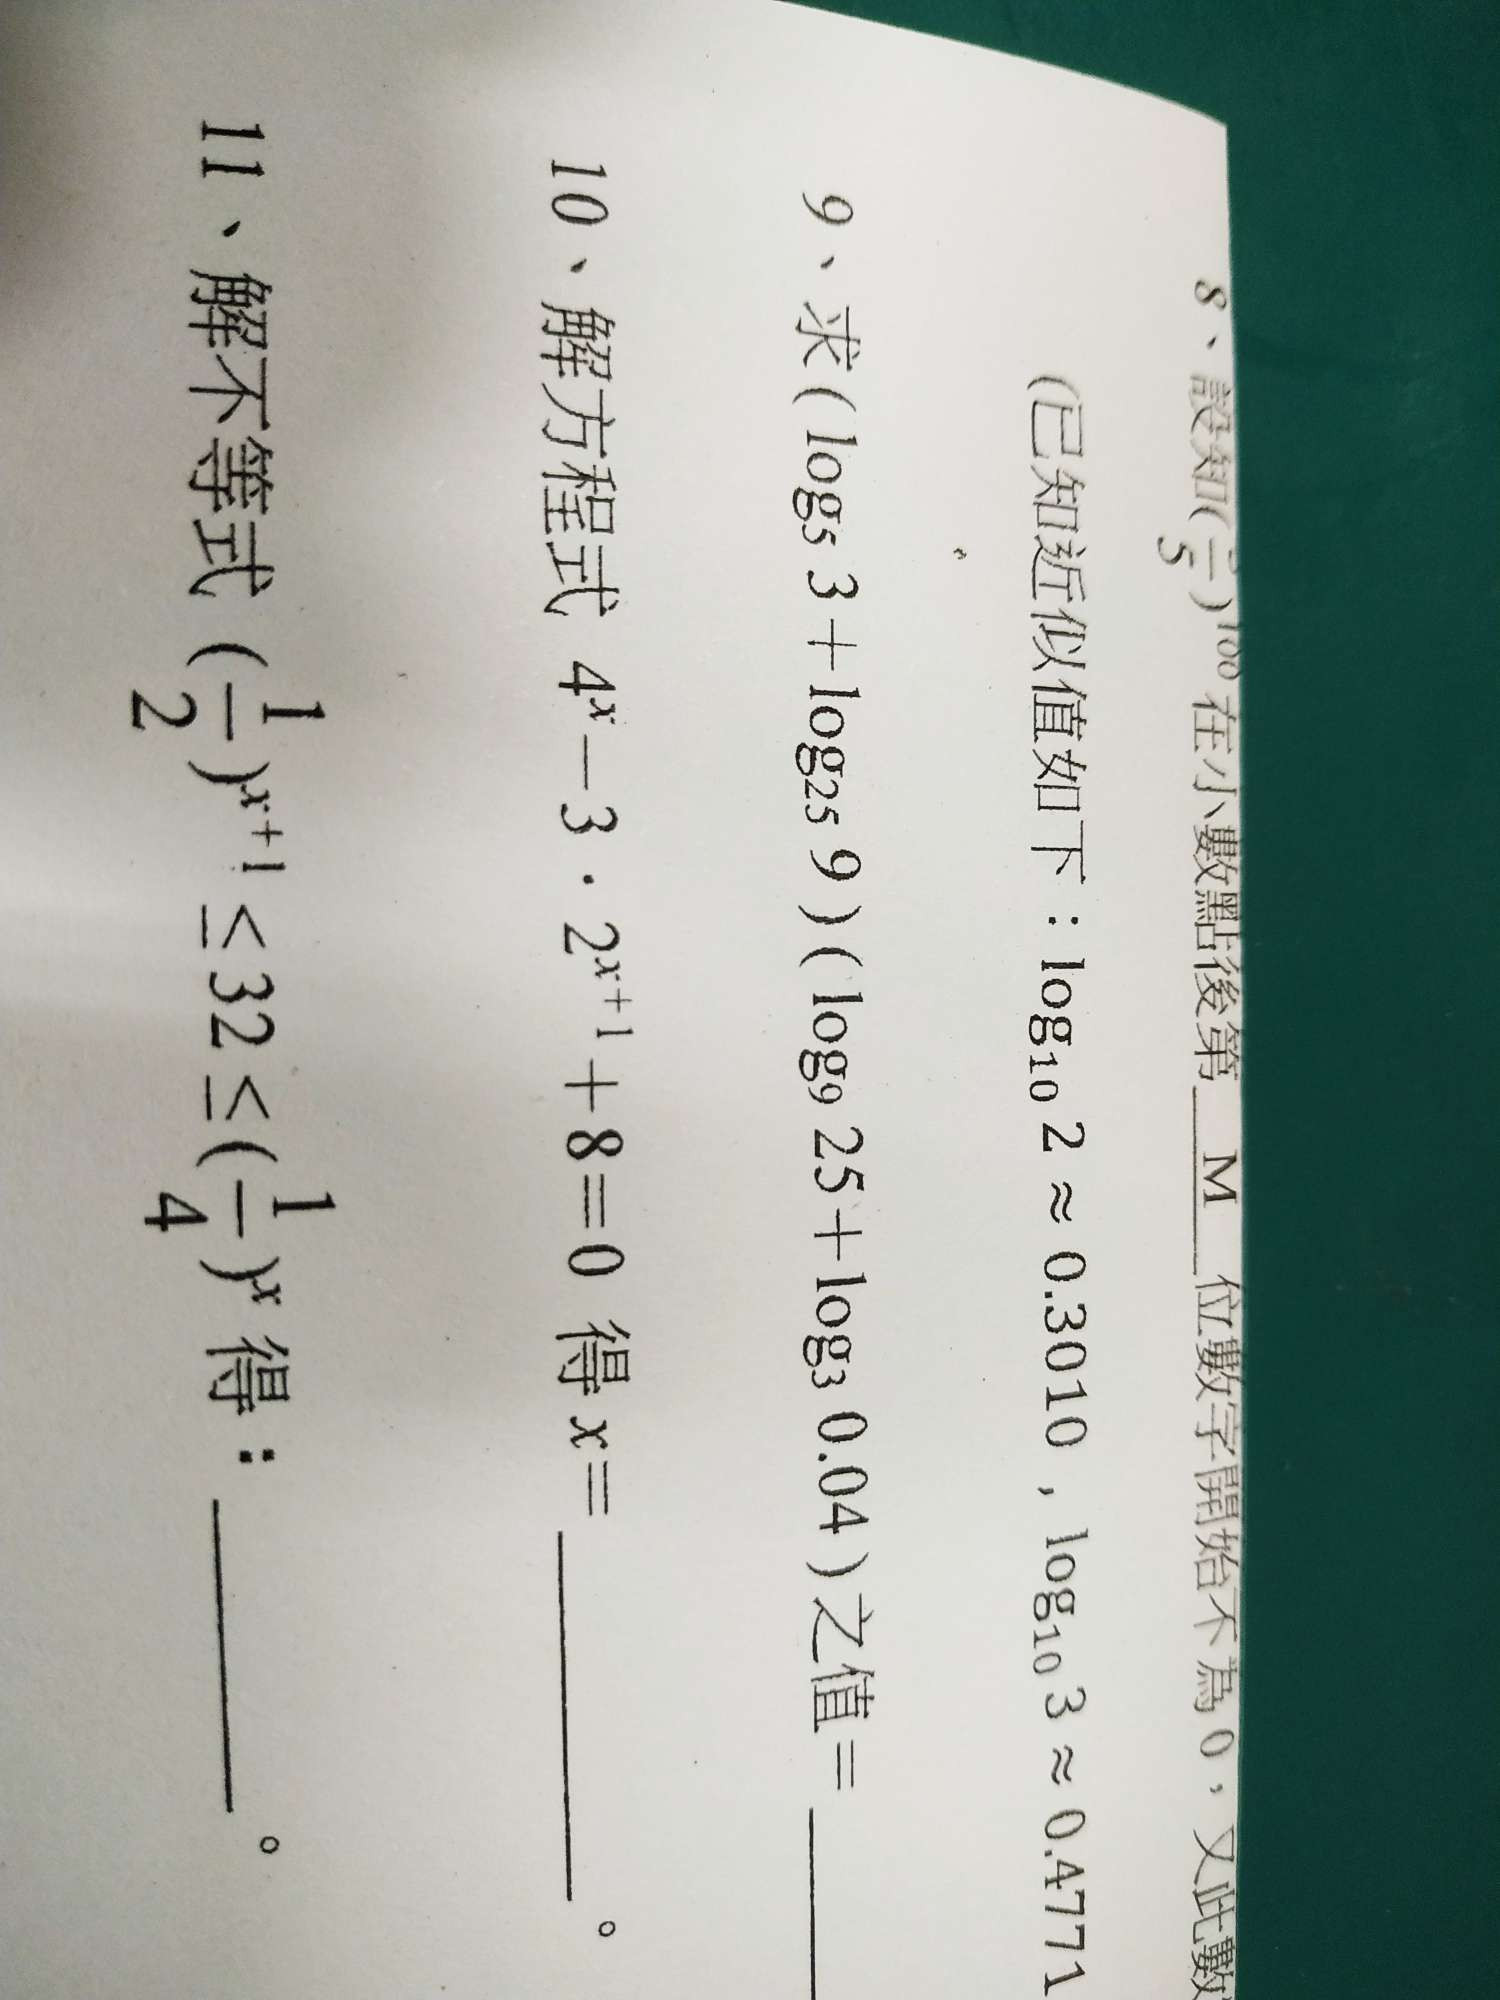 8、設知(—/5)¹⁰⁰在小數點後第 M 位數字開始不為0，又此數
(已知近似值如下：log₁₀ 2 ≈ 0.3010，log₁₀ 3 ≈ 0.4771
9、求(log₅ 3＋log₂₅ 9)(log₉ 25＋log₃ 0.04)之值＝______
10、解方程式 4ˣ－3．2ˣ⁺¹＋8＝0 得 x＝______。
11、解不等式 (1/2)ˣ⁺¹ ≤32≤(1/4)ˣ 得：______。